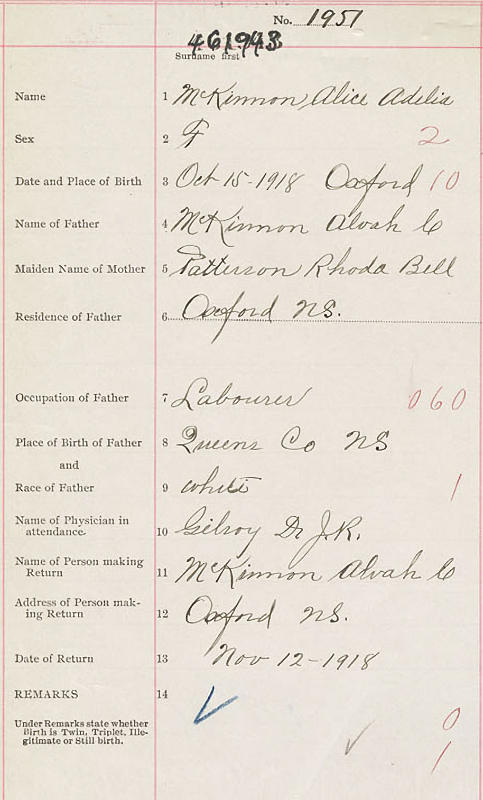 No. 1951
461943
Surname first
Name 1 McKinnon Alice Adelia
Sex 2 F 2
Date and Place of Birth 3 Oct 15-1918 Oxford 10
Name of Father 4 McKinnon Alvah C
Maiden Name of Mother 5 Patterson Rhoda Bell
Residence of Father 6 Oxford NS.
Occupation of Father 7 Labourer 060
Place of Birth of Father 8 Queens Co NS
and
Race of Father 9 white 1
Name of Physician in
attendance. 10 Gilroy Dr J.R.
Name of Person making
Return 11 McKinnon Alvah C
Address of Person mak-
ing Return 12 Oxford NS.
Date of Return 13 Nov 12-1918
REMARKS 14
Under Remarks state whether 0
Birth is Twin, Triplet, Ille-
gitimate or Still birth. 1